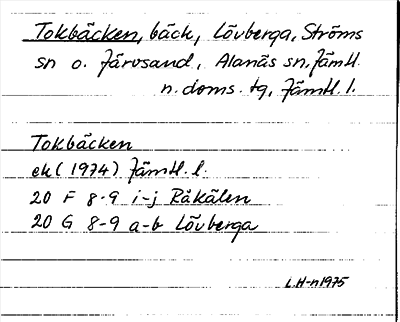 Tokbäcken, bäck, Lövberga, Ströms
sn o. Järvsand, Alanäs sn, Jämtl.
n. doms. tg, Jämtl. l.
Tokbäcken
ek (1974) Jämtl. l.
20 F 8-9 i-j Råkälen
20 G 8-9 a-b Lövberga
L.H-n 1975